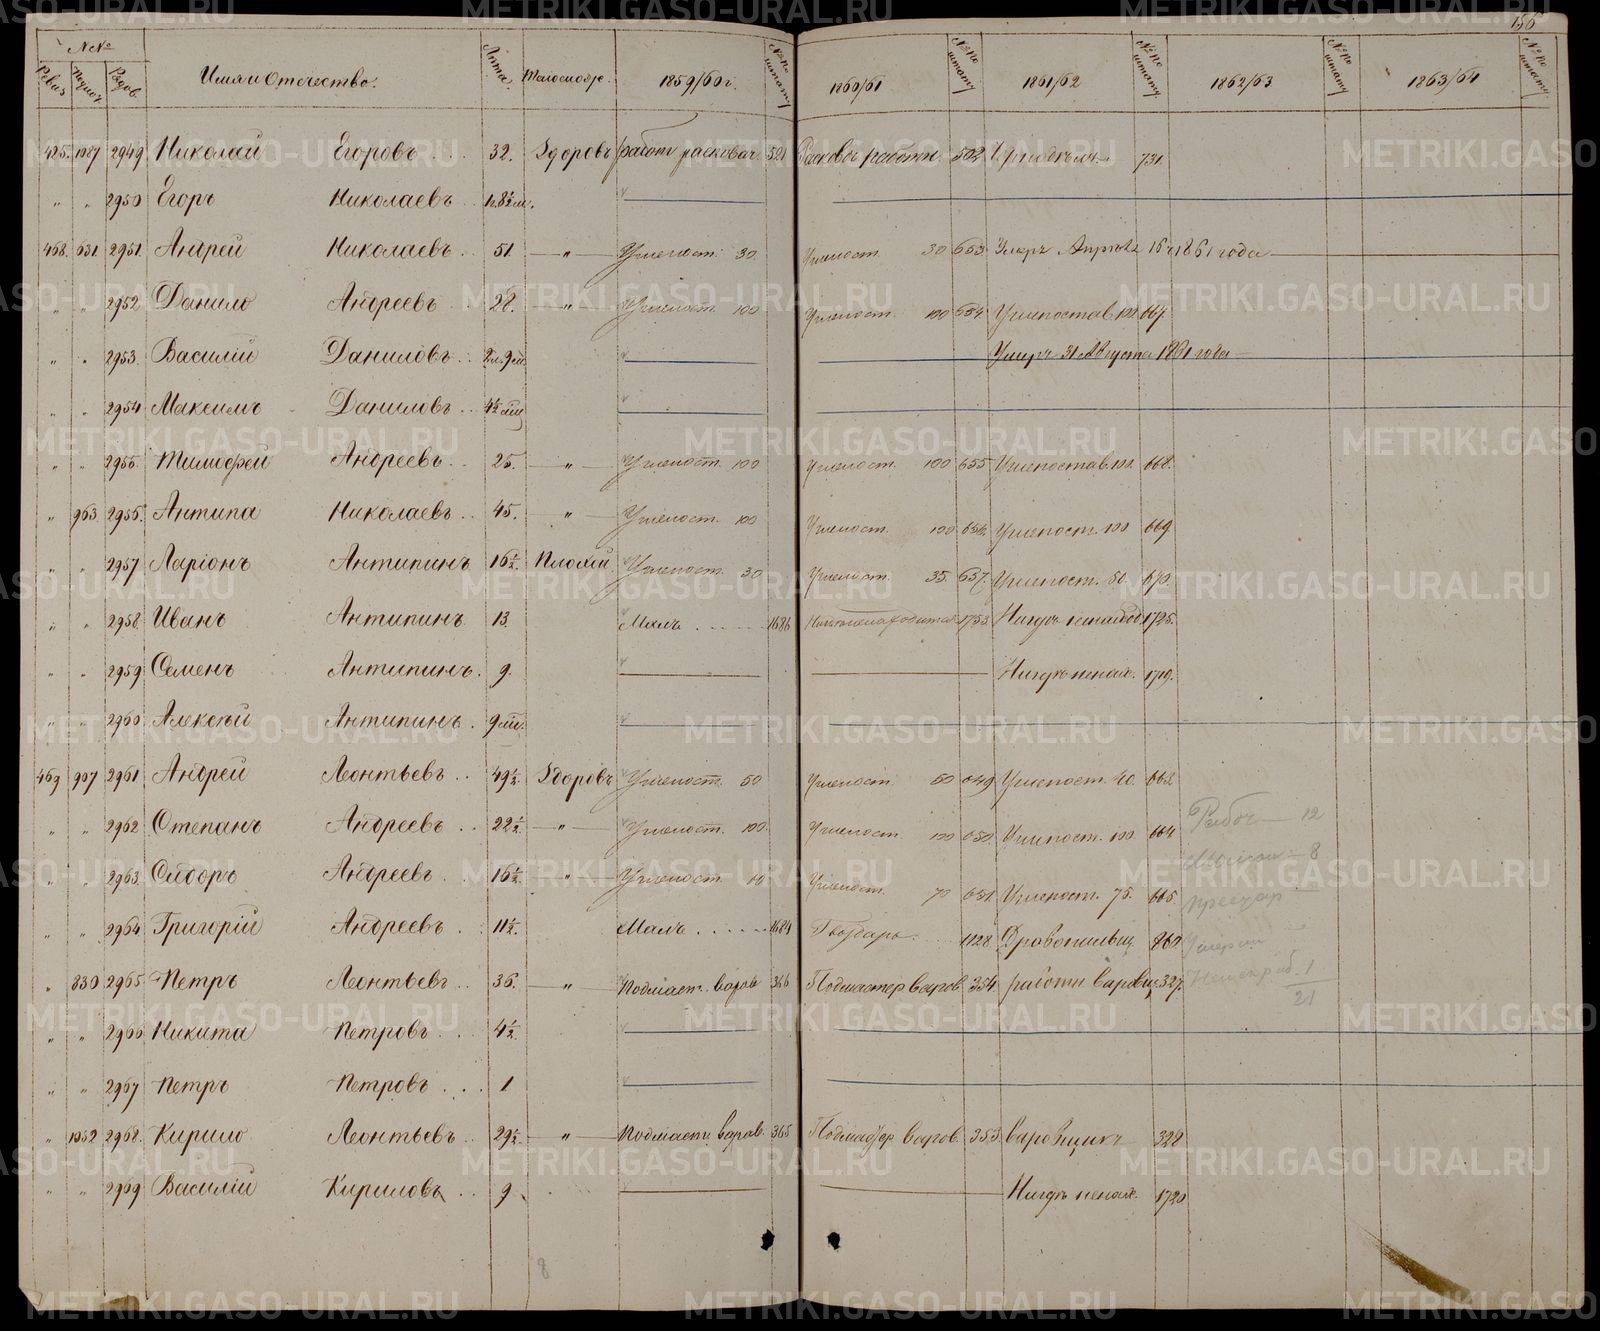 156
№№
Ревиз. Рядов. Имя и Отчество. Лѣта. Телослож. 1859/60 г. №№ по штату 1860/61 №№ по штату 1861/62 №№ по штату 1862/63 №№ по штату 1863/64 №№ по штату
425. 1087 2949 Николай Егоровъ . . . 32. Здоровъ работн расковач. 521 Расковоч. работн. 502 731.
" " 2950 Егоръ Николаевъ . .
468. 631. 2951. Андрей Николаевъ . . 51. — " — Углепост. 30. Углепост. 30 653. Умеръ Апрѣля 16 ч 1861 года
" " 2952 Данило Андреевъ . . 28. — " — Углепост. 100 Углепост. 100 654 Углепостав. 100 667.
" " 2953. Василій Даниловъ . . Умеръ 31 Августа 1861 года
" " 2954 Максимъ Даниловъ . .
" " 2955. Тимофей Андреевъ . . 25. — " — Углепост. 100 Углепост. 100 655 Углепостав. 100. 668.
" 963. 2956. Антипа Николаевъ . . 45. — " — Углепост. 100 Углепост. 100 656. Углепост. 100 669.
" " 2957 Ларіонъ Антипинъ 16½. Плохой Углепост. 30 Углепост. 35. 657. Углепост. 50. 670.
" " 2958. Иванъ Антипинъ. 13. Малъ . . . . . 1686 1753 Нигдѣ ненаход. 1725.
" " 2959 Семенъ Антипинъ. 9. Нигдѣ ненах. 1719.
" " 2960 Алексѣй Антипинъ. 9 м.
469 907 2961 Андрей Леонтьевъ . . 49½. Здоровъ Углепост. 50 Углепост. 50 649. Углепост. 40. 663.
" " 2962 Степанъ Андреевъ . . 22½. — " — Углепост. 100. Углепост. 100 650. Углепост. 100 664. Работ — 12
" " 2963. Сидоръ Андреевъ . 16½. " Углепост. Углепост. 70 651. Углепост. 75. 665. 8
" " 2964 Григорій Андреевъ . . 11½. Малъ . . . . . 1684 1128 Дровопильщ.
" 830 2965 Петръ Леонтьевъ . . 36. — " — Подмаст. варов 366 Подмастер варов. 354 работн варовщ. 327. 1
21
" " 2966 Никита Петровъ . . . 4½.
" " 2967 Петръ Петровъ . . . 1
" 1052 2968. Кирило Леонтьевъ . . 29½. — " — Подмаст. варов. 365 Подмастер варов. 353 варовщикъ 328
" " 2969 Василій Кириловъ . . 9. Нигдѣ ненах. 1720
8
METRIKI.GASO-URAL.RU